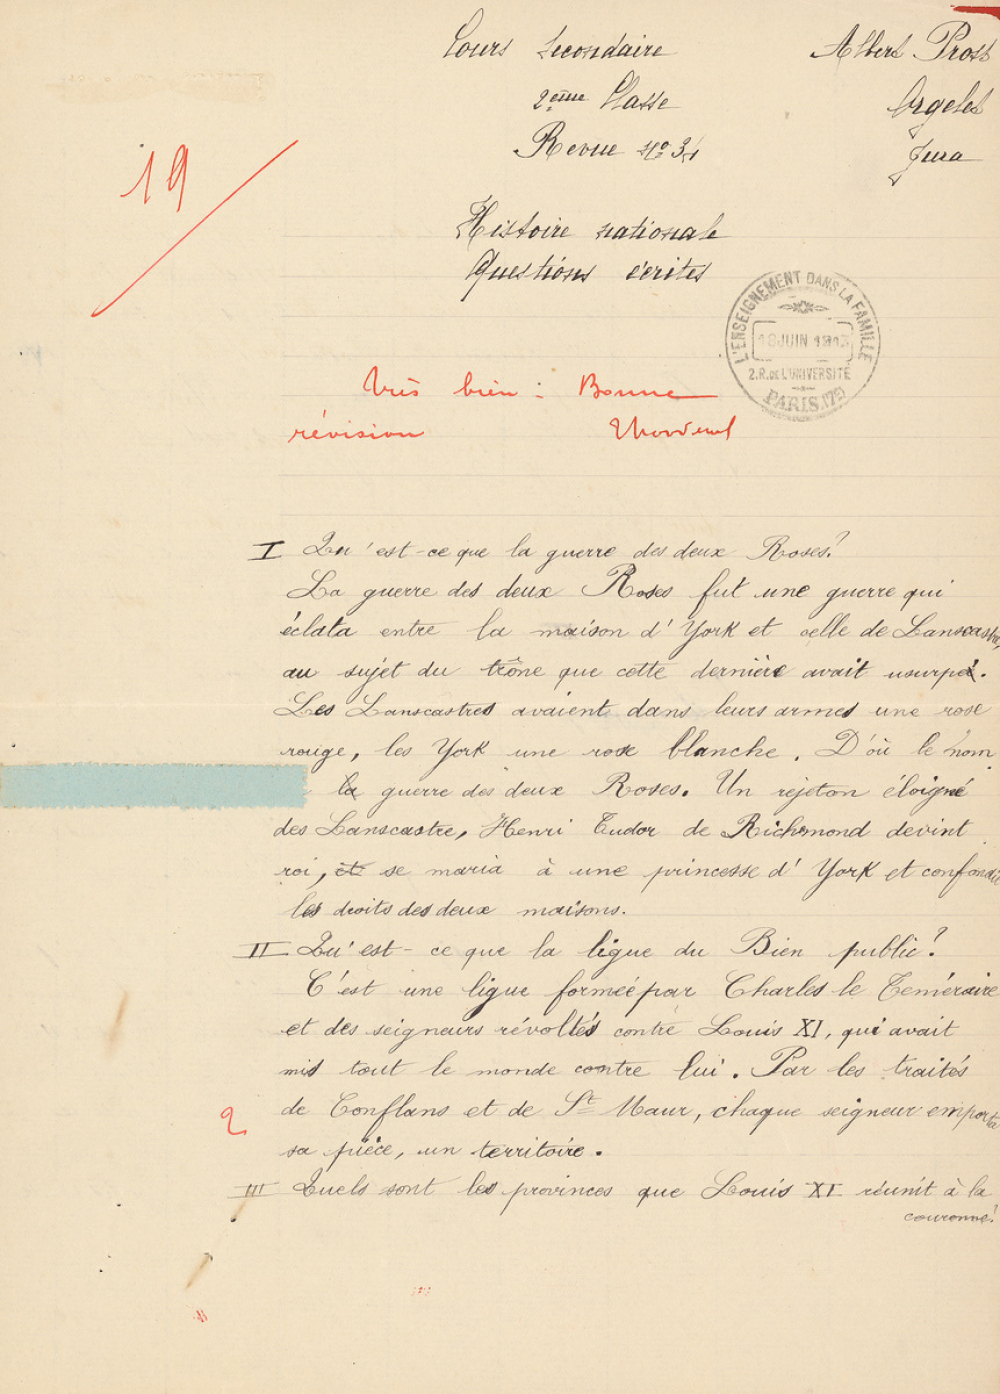 Cours secondaire
Albert Prost
2ème Classe
Orgelet
Revue Nº 34
Jura
19
Histoire nationale
Questions écrites
L'ENSEIGNEMENT DANS LA FAMILLE
18 JUIN 1913
2.R. de L'UNIVERSITÉ
PARIS
Très bien : Bonne
révision
I Qu'est-ce que la guerre des deux Roses?
La guerre des deux Roses fut une guerre qui
éclata entre la maison d'York et celle de Lanscastre,
au sujet du trône que cette dernière avait usurpé.
Les Lanscastres avaient dans leurs armes une rose
rouge, les York une rose blanche. D'où le nom
la guerre des deux Roses. Un rejeton éloigné
des Lanscastre, Henri Tudor de Richemond devint
roi, et se maria à une princesse d'York et confondit
les droits des deux maisons.
II Qu'est-ce que la ligue du Bien public?
C'est une ligue formée par Charles le Teméraire
et des seigneurs révoltés contre Louis XI, qui avait
mis tout le monde contre lui. Par les traités
de Conflans et de St Maur, chaque seigneur emporta
2
sa pièce, un territoire.
III Quels sont les provinces que Louis XI réunit à la
couronne?